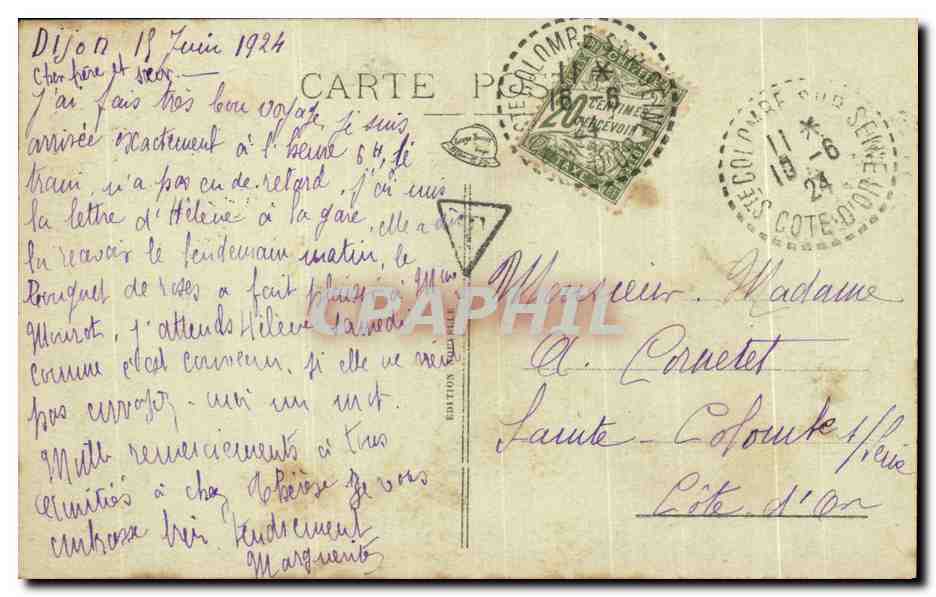 Dijon, 15 Juin 1924
Cher frère et sœur
J'ai fais très bon voyage, je suis
arrivée exactement à l'heure 6H, le
train n'a pas eu de retard, j'ai mis
la lettre d'Hélène à la gare, elle a dû
la recevoir le lendemain matin, le
Bouquet de roses a fait plaisir à Mme
j'attends Hélène Samedi
comme c'est convenu, si elle ne vient
pas envoyez-moi un mot.
Mille remerciements à tous
Amitiés à chez Thérèse Je vous
embrasse bien tendrement
Marguerite
CARTE POSTALE
STE COLOMBE SUR SEINE
11 *
16 -6
COTE D'OR
A PERCEVOIR
20 CENTIMES
STE COLOMBE SUR SEINE
11 *
16 -6
24
COTE D'OR
T
EDITION NOUVELLE
CPAPHIL
Monsieur, Madame
A. Cornetet
Sainte-Colombe s/Seine
Côte d'Or